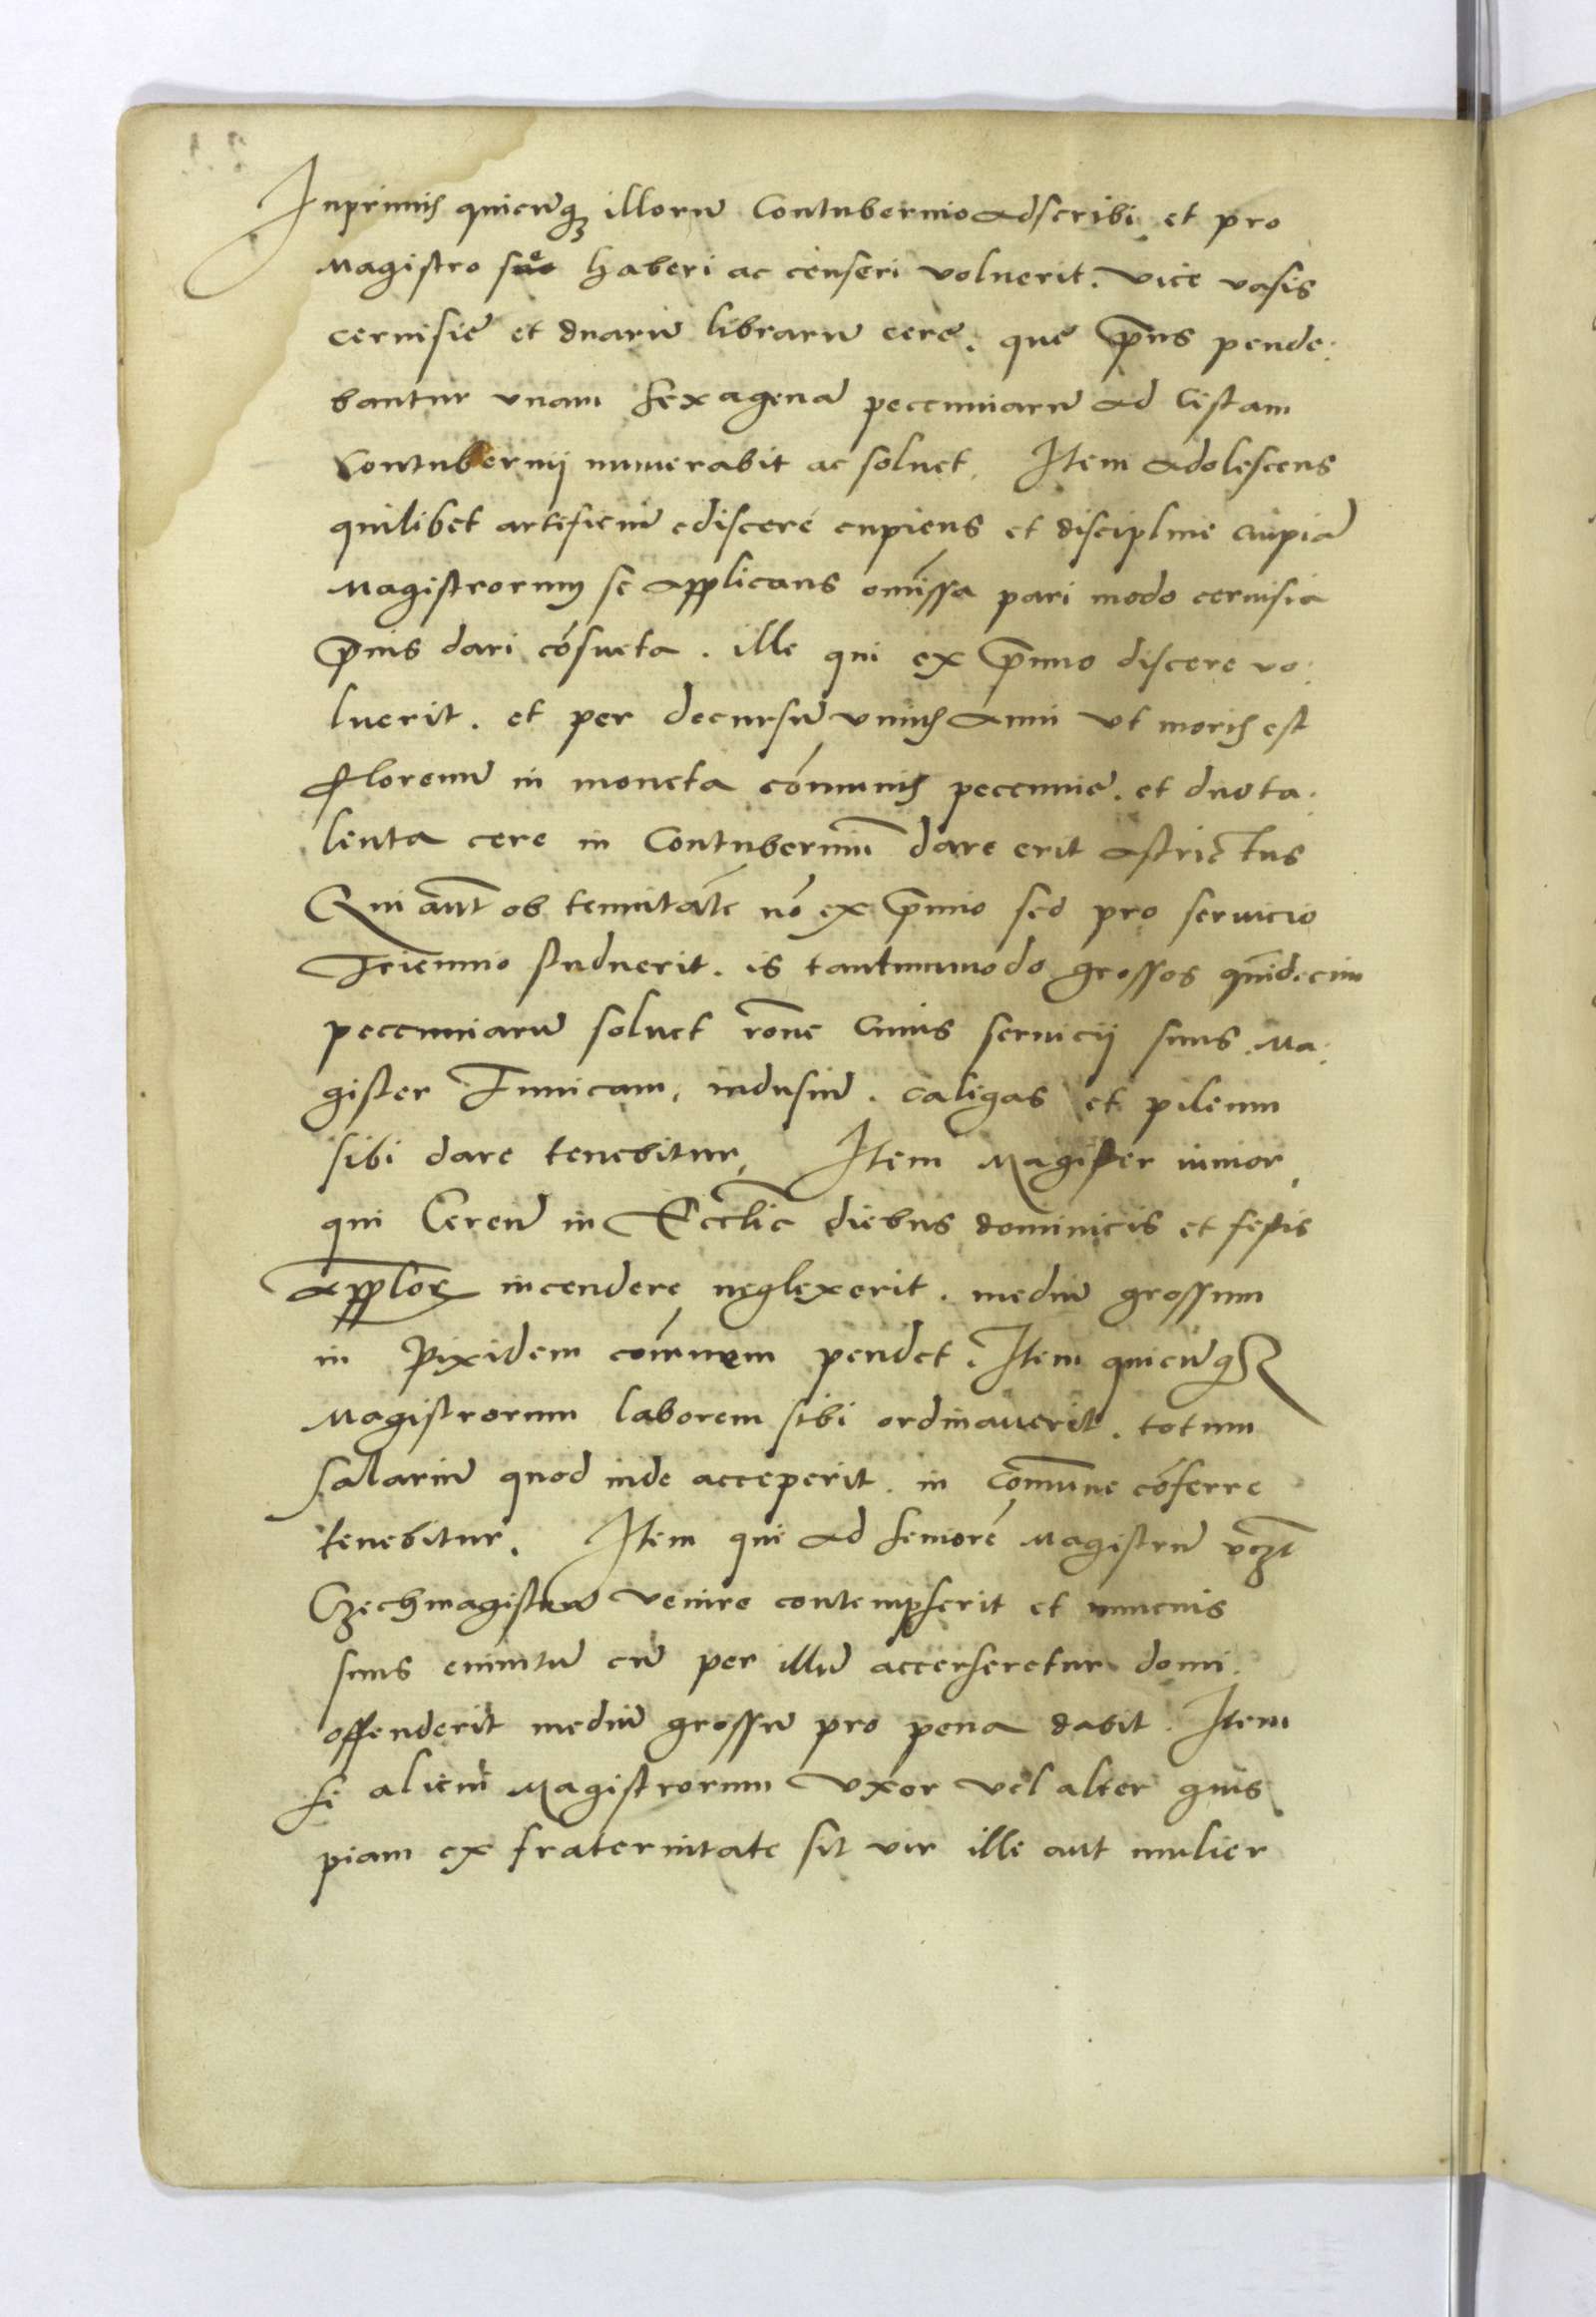 Inprimis quicūqȝ illorū Contubernio adscribi et pro
Magistro se haberi ac censeri voluerit. vice vasis
ceruisie et duarū librarū cere. que p̄us pende:
bantur vnam sexagenā peccuniarū ad Cistam
Contubernij numerabit ac soluet. Item adolescens
quilibet artificiū ediscere cupiens et discipline cuipiā
Magistrorum se applicans omissa pari modo ceruisia
p̄us dari cōsueta. ille qui ex p̄mio discere vo:
luerit. et per decursū vnius anni vt moris est
florenū in moneta cōmunis peccunie. et duo ta:
lenta cere in Contuberniū dare erit astrictus
Qui aūt ob tenuitatē nō ex p̄mio sed pro seruicio
Triennio studuerit. is tantummodo grossos quīdecim
peccuniarū soluet rōne cuius seruicij suus Ma:
gister Tunicam, indusiū. caligas et pileum
sibi dare tenebitur, Item Magister iunior,
qui Cereū in Eccl̄ie diebus dominicis et festis
appl̄oꝝ incendere neglexerit. mediū grossum
in Pixidem cōmunem pendet. Item quicūqȝ
Magistrorum laborem sibi ordinauerit. totum
salariū quod inde acceperit. in Com̄une cōferre
tenebitur. Item qui ad seniorē Magistrū vcꝫt
Czechmagistrū venire contempserit et nuncius
suus eunitū cū per illū accerseretur domi
offenderit mediū grossū pro pena dabit. Item
si alicui Magistrorum vxor vel alter quis
piam ex fraternitate sit vir ille aut mulier